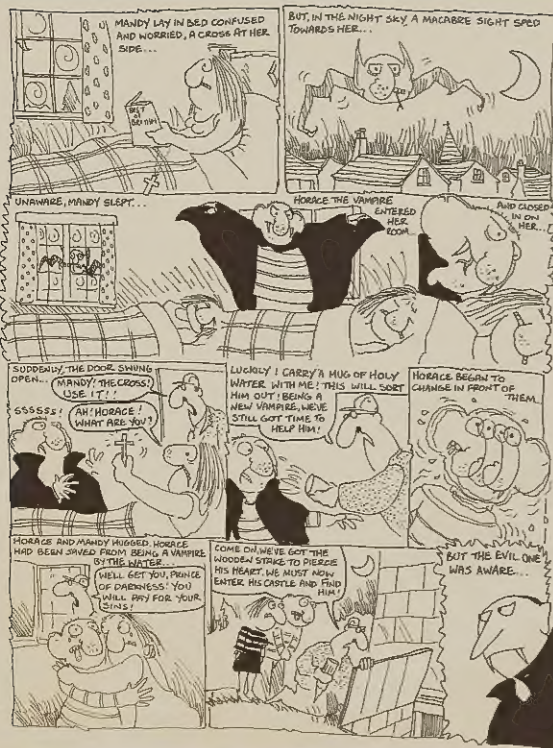 MANDY LAY IN BED CONFUSED
AND WORRIED, A CROSS AT HER
SIDE...
BEST OF
BRITISH
BUT, IN THE NIGHT SKY, A MACABRE SIGHT SPED
TOWARDS HER...
UNAWARE, MANDY SLEPT...
HORACE THE VAMPIRE
ENTERED
HER
ROOM...
AND CLOSED
IN ON
HER...
SUDDENLY, THE DOOR SWUNG
OPEN...
MANDY! THE CROSS!
USE IT!!
SSSSSS!
AH! HORACE!
WHAT ARE YOU?
LUCKILY I CARRY A MUG OF HOLY
WATER WITH ME! THIS WILL SORT
HIM OUT! BEING A
NEW VAMPIRE, WE'VE
STILL GOT TIME TO
HELP HIM!
HORACE BEGAN TO
CHANGE IN FRONT OF
THEM...
HORACE AND MANDY HUGGED. HORACE
HAD BEEN SAVED FROM BEING A VAMPIRE
BY THE WATER...
WE'LL GET YOU, PRINCE
OF DARKNESS! YOU
WILL PAY FOR YOUR
SINS!
COME ON, WE'VE GOT THE
WOODEN STAKE TO PIERCE
HIS HEART. WE MUST NOW
ENTER HIS CASTLE AND FIND
HIM!
BUT THE EVIL ONE
WAS AWARE...